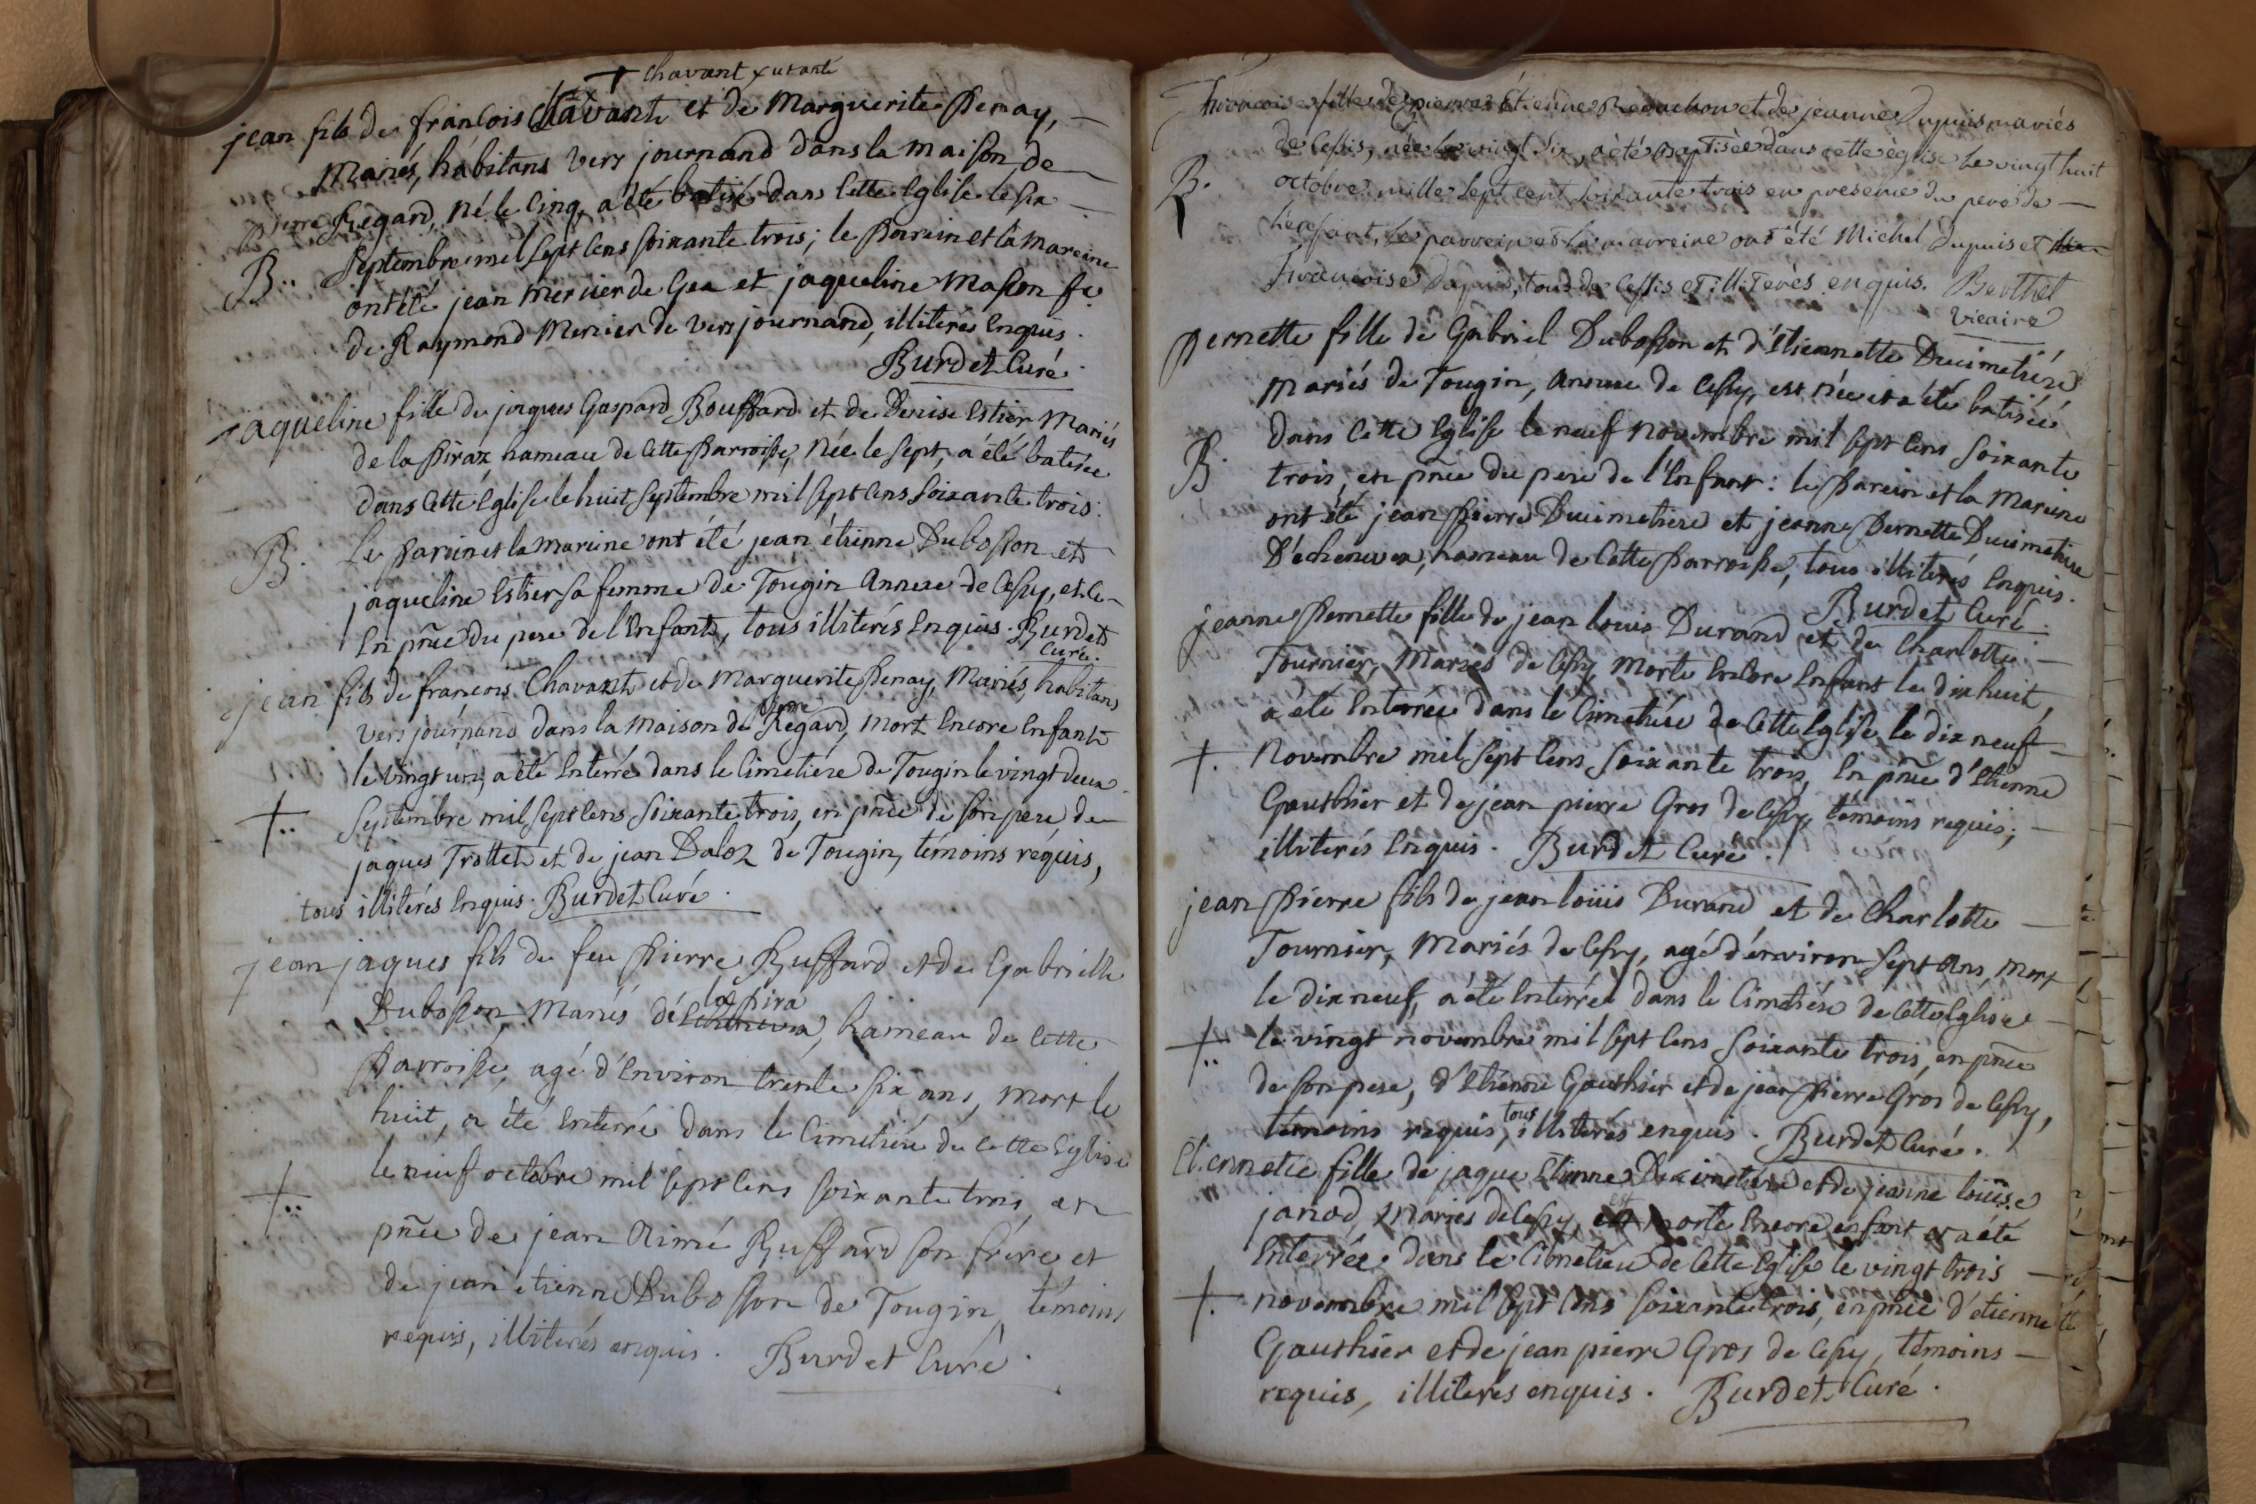 + Chavant
jean fils de francois Chavant et de Marguerite Penay,
Mariés, habitans Vers journand dans la maison de
pierre Regard, né le Cinq, a été batisé dans Cette Eglise le six
B.. Septembre mil sept Cens soixante trois; le Parrein et la Mareine
ont été jean Mercier de Gex et jaqueline Masson fe
de Raymond Mercier de Vers journand, illiterés Enquis.
Burdet Curé.
Jaqueline fille de jaques Gaspard Bouffard et de Denise Estier Mariés
de la Piraz hameau de Cette Parroisse, Née le sept, a été batisée
dans Cette Eglise le huit Septembre mil sept Cens soixante trois:
B. Le Parein et la Mareine ont été jean étienne Dubosson et
jaqueline Estier sa femme de Tougin Annexe de Cessy, et le
En pñce du pere de l'Enfant, tous illiterés Enquis. Burdet
Curé.
jean fils de françois Chavant et de Marguerite Penay, Mariés, habitans
Vers journand dans la maison de pierre Regard, mort Encore Enfant
le vingt un, a été Enterré dans le Cimetiére de Tougin le vingt deux
+.. Septembre mil sept Cens soixante trois, en pñce de son pere de
jaques Trottet et de jean Daloz de Tougin, témoins requis,
tous illiterés Enquis. Burdet Curé.
jean jaques fils de feu Pierre Ruffard et de Gabrielle
Dubosson, Mariés de la Pira, hameau de Cette
Parroisse, agé d'Environ trente six ans, mort le
huit, a été Enterré dans le Cimetiére de Cette Eglise
le neuf octobre mil sept Cens soixante trois, en
+.. pñce de jean Aimé Ruffard son frére et
de jean étienne Dubosson de Tougin, témoins
requis, illiterés enquis. Burdet Curé.
Françoise fille de pierre Étienne et de jeanne Dupuis mariés
de Cessis, née le vingt six, a été Baptisée dans cette église le vingt huit
B. octobre mille sept cent soixante trois en presence du pere de
l'enfant, le parrein et la marreine ont été Michel Dupuis et
françoise Dupuis, tous de Cessis et illiterés enquis. Berthet
vicaire
Pernette fille de Gabriel Dubosson et d'Etiennette Ducimetiére
Mariés de Tougin, annexe de Cessy, est née et a été batisée
dans Cette Eglise le neuf Novembre mil sept Cens soixante
B. trois, en pñce du pere de l'Enfant: le Parein et la Mareine
ont été jean Pierre Ducimetiere et jeanne Pernette Ducimetiere
D'echenevex, hameau de Cette Parroisse, tous illiterés Enquis.
Burdet Curé.
jeanne Pernette fille de jean louis Durand et de Charlotte
Tournier, Mariés de Cessy, Morte Encore Enfant le dix huit,
a été Enterrée dans le Cimetiére de Cette Eglise le dix neuf
+. Novembre mil sept Cens soixante trois, En pñce d'Etienne
Gauthier et de jean pierre Gros de Cessy, témoins requis;
illiterés Enquis. Burdet Curé.
jean Pierre fils de jean louis Durand et de Charlotte
Tournier, Mariés de Cessy, agé d'environ sept ans, mort
le dix neuf, a été Enterré dans le Cimetiére de Cette Eglise
+.. le vingt novembre mil sept Cens soixante trois, en pñce
de son pere, d'Etienne Gauthier et de jean Pierre Gros de Cessy,
témoins requis, tous illiterés enquis. Burdet Curé.
Etiennette fille de jaque Etienne Ducimetiere et de jeanne louise
janod, Mariés de Cessy, est morte Encore enfant et a été
Enterrée dans le Cimetiére de Cette Eglise le vingt trois
+. novembre mil sept Cens soixante trois, en pñce d'etienne
Gauthier et de jean pierre Gros de Cessy, témoins
requis, illiterés enquis. Burdet Curé.